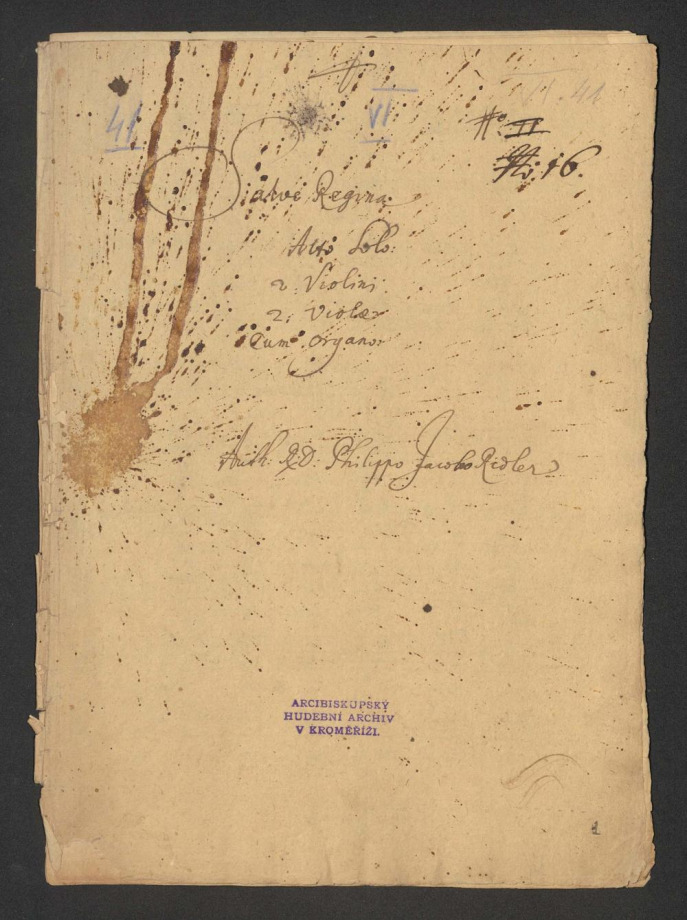 41
VI
VI. 41
No. II
No: 16.
Salve Regina
Alto Solo:
2 Violini
2. Violæ
Cum Organo:
Auth: R.D: Philippo Jacobo Ridler
ARCIBISKUPSKÝ
HUDEBNÍ ARCHIV
V KROMĚŘÍŽI.
1